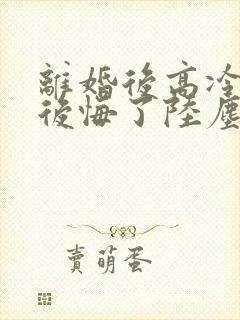 離婚後高冷
後悔了陸塵
賣萌蛋